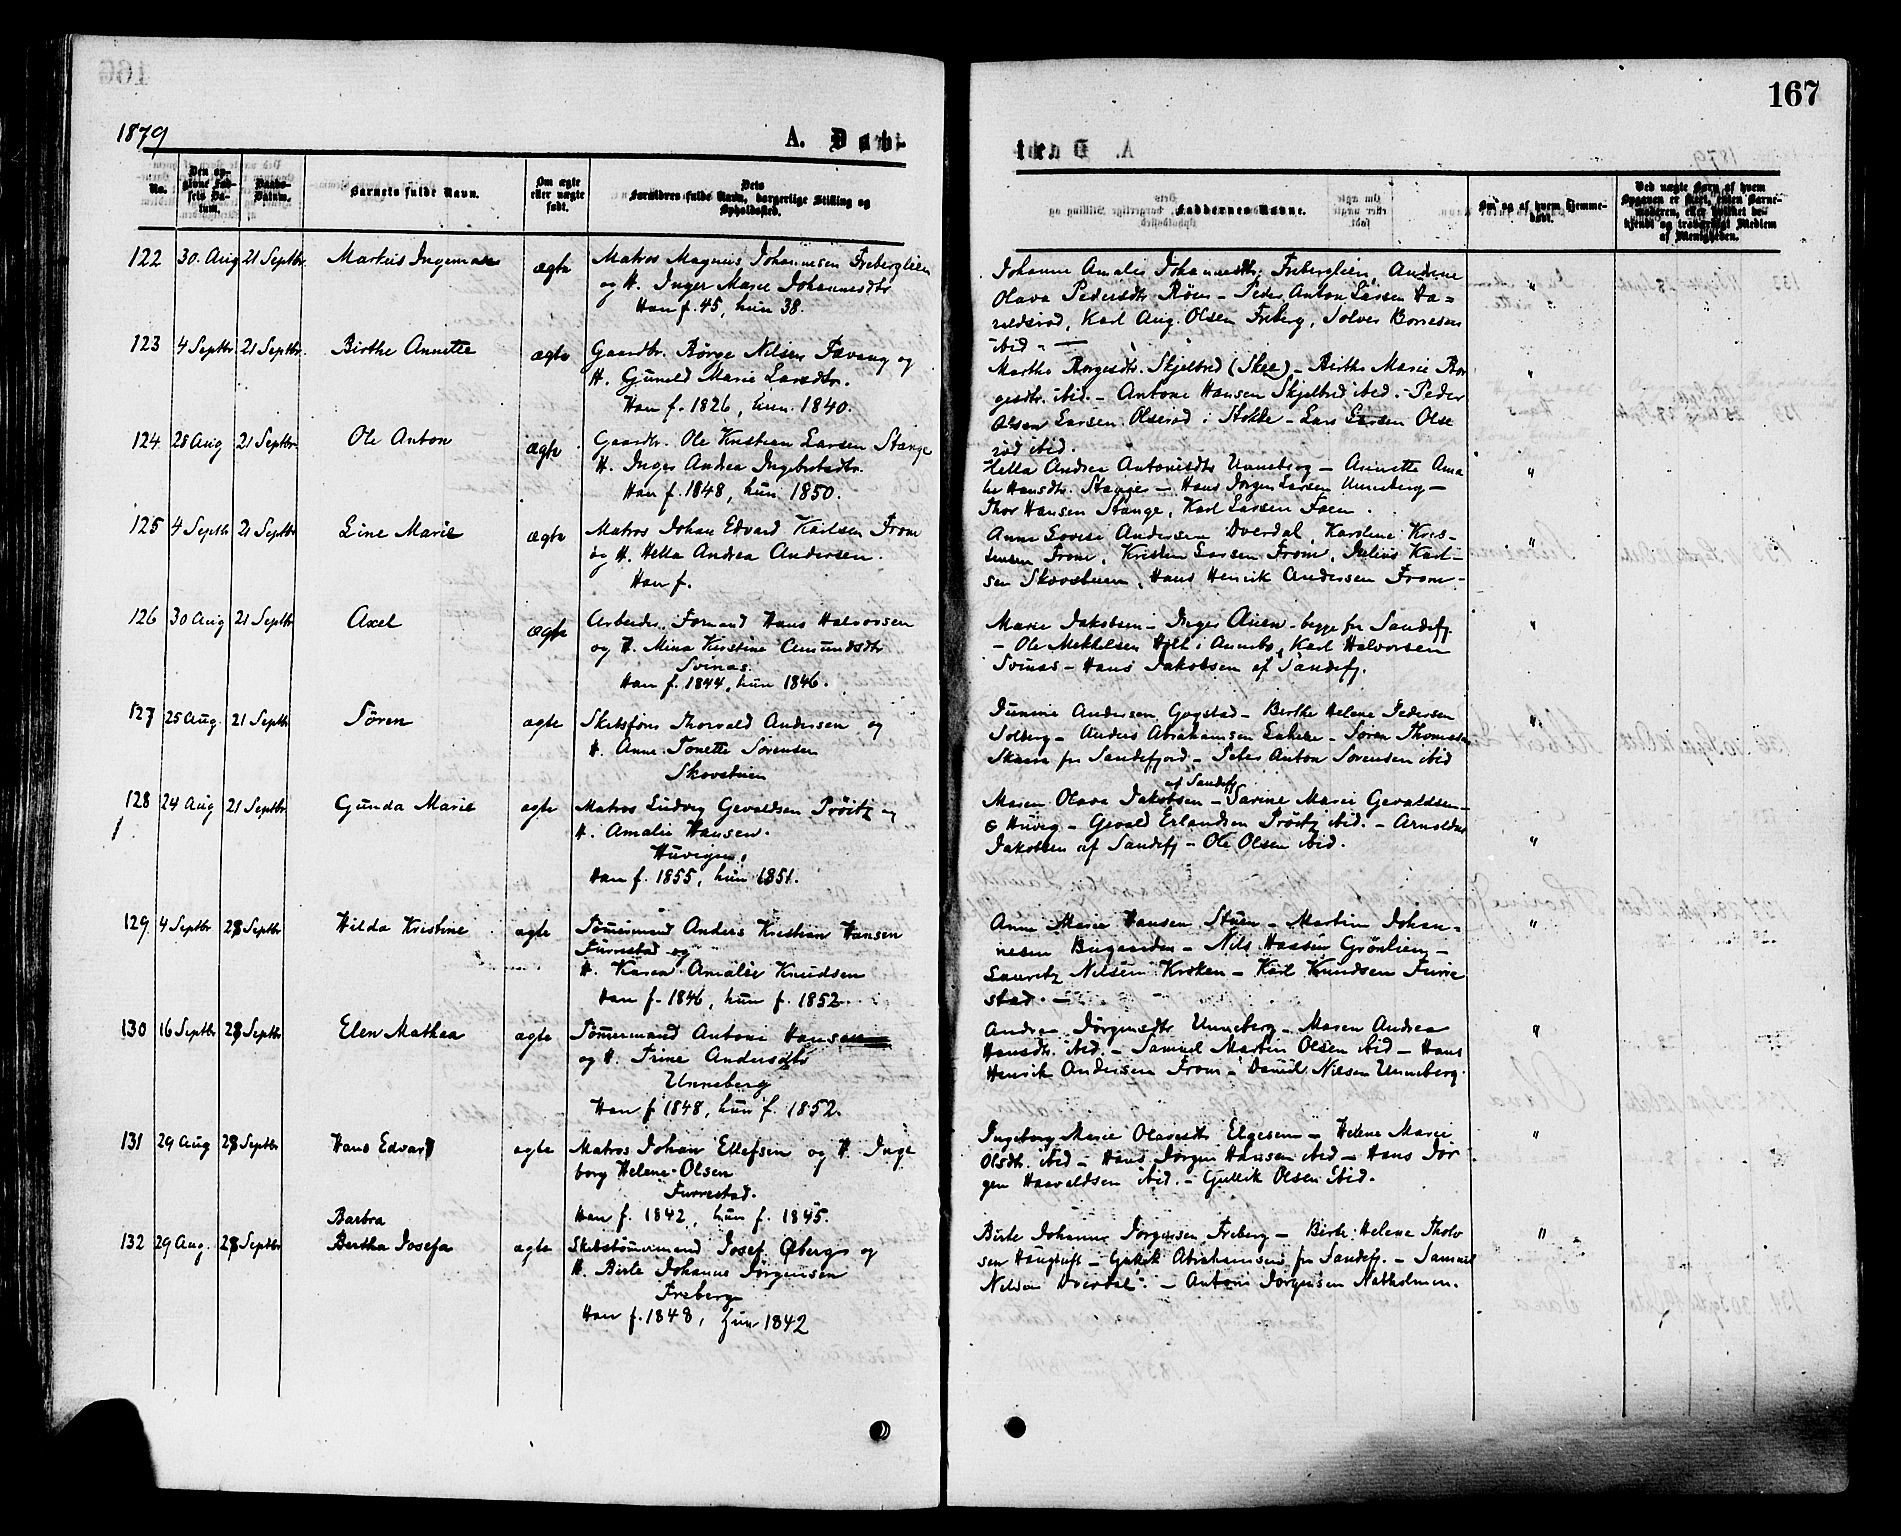 167
1879
A. Døb-
te.
No.
Den op-
givne Fød-
sels Da-
tum.
Daabs-
Datum.
Barnets fulde Navn.
Om ægte
eller uægte
født.
Dets
Forældres fulde Navn, borgerlige Stilling og
Opholdssted.
Faddernes Navne.
Om og af hvem Hjemme-
døbt.
Ved uægte Børn af hvem
Opgaven er skeet, enten Barne-
moderen, eller hvilket be-
kjendt og troværdigt Medlem
af Menigheden.
122 30. Aug 21 Septbr. Markus Ingemar ægte Matros Magnus Johannesen Freberglien
og H. Inger Marie Johannesdtr
Han f. 45, hun 38.
Johanne Amalie Johannesdtr. Freberglien, Andrine
Olava Pedersdtr Röen - Peder Anton Larsen Ha=
raldsröd, Karl Aug. Olsen Freberg, Solver Borresen
ibid - "
123 4 Septbr. 21 Septbr. Birthe Annette ægte Gaardbr. Börge Nilsen Fævang og
H. Gunild Marie Larsdtr.
Han f. 1826, hun 1840.
Marthe Borgesdtr. Skjelbred (Skee) - Birthe Marie Bor
gesdtr. ibid. - Antone Hansen Skjelbred ibid. - Peder
Olsen Larsen Olseröd i Stokke - Lars Larsen Olse
röd ibid. "
124 28 Aug 21 Septbr Ole Anton ægte Gaardbr. Ole Kristian Larsen Stange
H. Inger Andrea Ingebretsdtr.
Han f. 1848, hun 1850.
Hella Andrea Antonisdtr Unneberg - Annette Ama
lie Hansdtr. Stange - Hans Jörgen Larsen Unneberg -
Thor Hansen Stange, Karl Larsen Faen. "
125 4 Septbr 21 Septbr Line Marie ægte Matros Johan Edvard Karlsen From
og H. Hella Andrea Andersen.
Han f.
Anne Lovise Andersen Dverdal, Karoline Kris-
tensen From, Kristen Larsen From, Julius Karl-
sen Skovstuen, Hans Henrik Andersen From - "
126 30 Aug 21 Septbr Axel ægte Arbeider, Formand Hans Halvorsen
og H. Mina Kristine Amundsdtr
Svinas.
Han f. 1844, hun 1846.
Marie Jakobsen - Inger Auen - begge fr Sandefj.
- Ole Mikkelsen Hjelt i Annebo, Karl Halvorsen
Svinas - Hans Jakobsen af Sandefj. "
127 25 Aug. 21 Septbr Sören ægte Skibstöm Thorvald Andersen og
H. Anne Tonette Sorensen
Skovstuen
Junine Andersen Gogstad - Birthe Helene Pedersen
Solberg - Anders Abrahamsen - Soren Thomasen
fr Sandefjord - Peter Anton Sorensen ibid "
128 24 Aug 21 Septbr Gunda Marie ægte Matros Ludvig Gevaldsen Pröitz og
H. Amalie Hansen.
Huvigen.
Han f. 1855, hun 1851.
af Sandefj
Maren Olava Jakobsen - Sarine Marie Gevaldsen -
Huvig - Gevald Erlandsen Pröitz ibid. - Arnoldus
Jakobsen af Sandefj - Ole Olsen ibid. "
129 4 Septbr 28 Septbr Hilda Kristine ægte Tömmermand Anders Kristian Hansen
Furrestad og
H. Karen Amalie Knudsen
Han f. 1846, hun f. 1852.
Anne Marie Hansen Stuen - Martin Johan-
nesen Bugaarden - Nils Hansen Grönlien -
Lauritz Nilsen Kroken - Karl Knudsen Furre
stad. - "
130 16 Septbr 28 Septbr Elen Mathea ægte Tömmermand Antoni Hansen
og H. Trine Andersdtr
Unneberg
Han f 1848, hun f. 1852.
Andrea Jörgensdtr Unneberg - Maren Andrea
Hansdtr. ibid - Samuel Martin Olsen ibid - Hans
Henrik Andersen From - Daniel Nilsen Unneberg. "
131 29 Aug 28 Septbr Hans Edvard ægte Matros Johan Ellefsen og H. Inge
borg Helene Olsen
Furrestad.
Han f. 1842, hun f. 1845.
Ingeborg Marie Olavesdtr Elgesem - Helene Marie
Olsdtr. ibid - Hans Jörgen Hansen ibid - Hans Jör
gen Haavaldsen ibid. - Gullik Olsen ibid. "
132 29 Aug. 28 Septbr Barbra
Bertha Josefa ægte Skibstömmermand Josef Öberg og
H. Birte Johanne Jörgensen
Freberg
Han f. 1848, hun 1842
Birte Johanne Jörgensen Freberg - Birte Helene Tholv
sen Haugtuft - Gullik Abrahamsen fr Sandefj. - Samuel
Nilsen Dverdal. - Antoni Jörgensen Natholmen. "